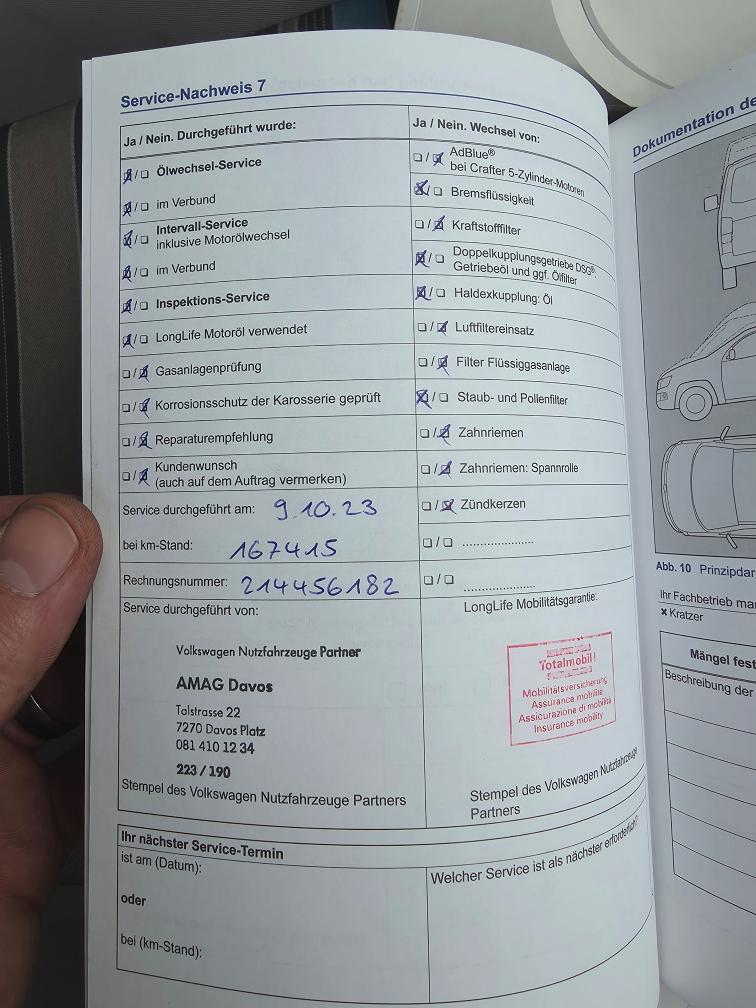 Service-Nachweis 7
Ja / Nein. Durchgeführt wurde:
Ölwechsel-Service
im Verbund
Intervall-Service
inklusive Motorölwechsel
im Verbund
Inspektions-Service
LongLife Motoröl verwendet
Gasanlagenprüfung
Korrosionsschutz der Karosserie geprüft
Reparaturempfehlung
Kundenwunsch
(auch auf dem Auftrag vermerken)
Service durchgeführt am: 9.10.23
bei km-Stand: 167415
Rechnungsnummer: 214456182
Service durchgeführt von:
Volkswagen Nutzfahrzeuge Partner
AMAG Davos
Talstrasse 22
7270 Davos Platz
081 410 12 34
223 / 190
Stempel des Volkswagen Nutzfahrzeuge Partners
Ja / Nein. Wechsel von:
AdBlue®
bei Crafter 5-Zylinder-Motoren
Bremsflüssigkeit
Kraftstofffilter
Doppelkupplungsgetriebe DSG®:
Getriebeöl und ggf. Ölfilter
Haldexkupplung: Öl
Luftfiltereinsatz
Filter Flüssiggasanlage
Staub- und Pollenfilter
Zahnriemen
Zahnriemen: Spannrolle
Zündkerzen
LongLife Mobilitätsgarantie:
Totalmobil!
Mobilitätsversicherung
Assurance mobilité
Assicurazione di mobilità
Insurance mobility
Stempel des Volkswagen Nutzfahrzeuge
Partners
Ihr nächster Service-Termin
ist am (Datum):
oder
bei (km-Stand):
Welcher Service ist als nächster erforderlich?
Dokumentation de
Abb. 10 Prinzipdar
Ihr Fachbetrieb mar
× Kratzer
Mängel fest
Beschreibung der